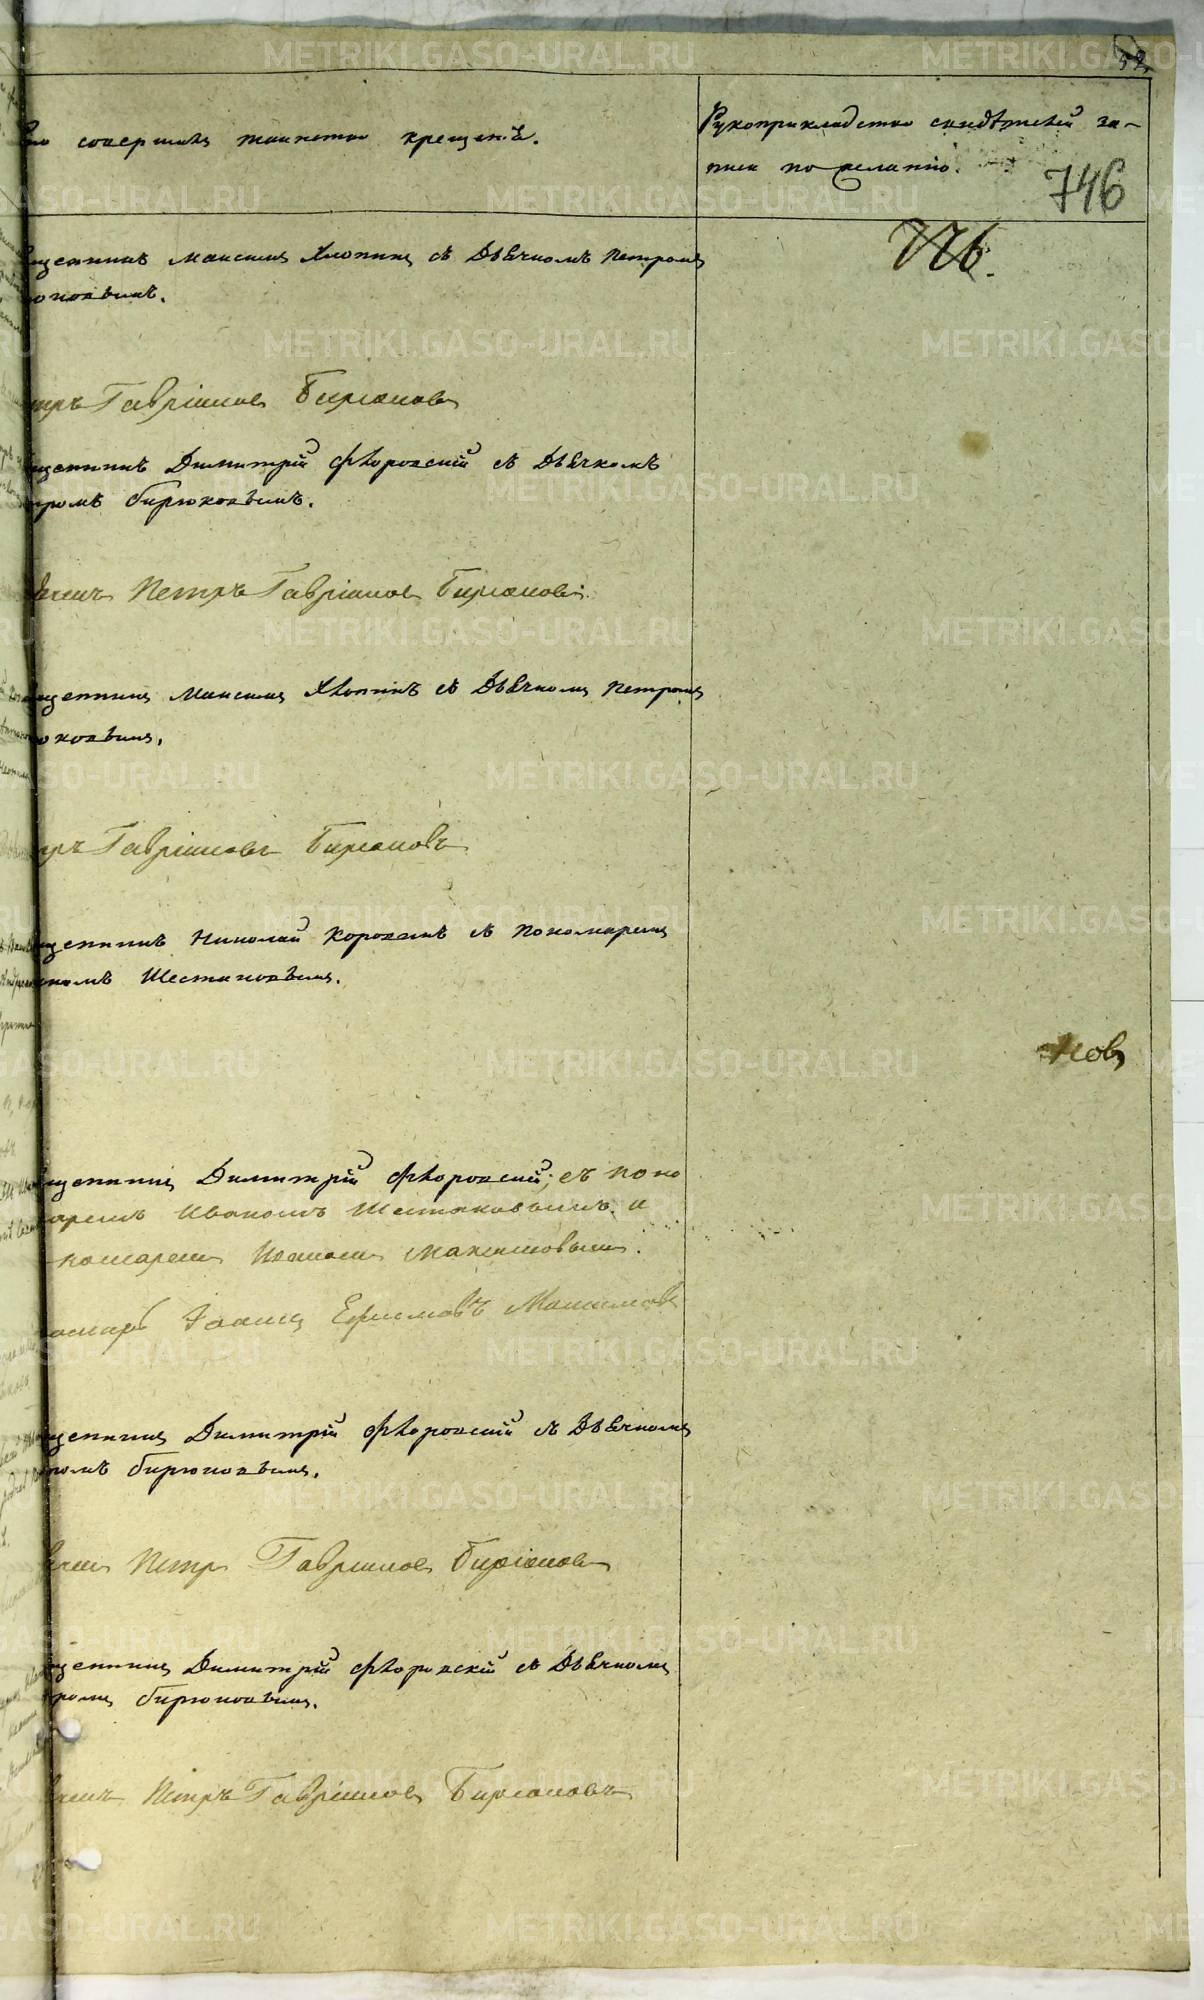 52
совершалъ таинство крещенія.
Рукоприкладство свидѣтелей за-
писи по желанію.
746
щенникъ Максимъ Хлопинъ съ Дьячкомъ Петромъ
юковымъ.
тръ Гавріиловъ Бирюковъ
щенникъ Димитрій Флоровскій съ Дьячкомъ
тромъ Бирюковымъ.
ячекъ Петръ Гавріиловъ Бирюковъ.
щенникъ Максимъ Хлопинъ съ Дьячкомъ Петромъ
юковымъ.
тръ Гавріиловъ Бирюковъ
щенникъ Николай Коровинъ съ Пономаремъ
номъ Шестаковымъ.
новъ
щенникъ Димитрій Флоровскій; съ поно
аремъ Иваномъ Шестаковымъ и
номаремъ Иваномъ Максимовымъ.
омарь Іоаннъ Ефимовъ Максимовъ
щенникъ Димитрій Флоровскій съ Дьячкомъ
ромъ Бирюковымъ.
ячекъ Петръ Гавріиловъ Бирюковъ
щенникъ Димитрій Флоровскій съ Дьячкомъ
тромъ Бирюковымъ.
ячекъ Петръ Гавріиловъ Бирюковъ
METRIKI.GASO-URAL.RU